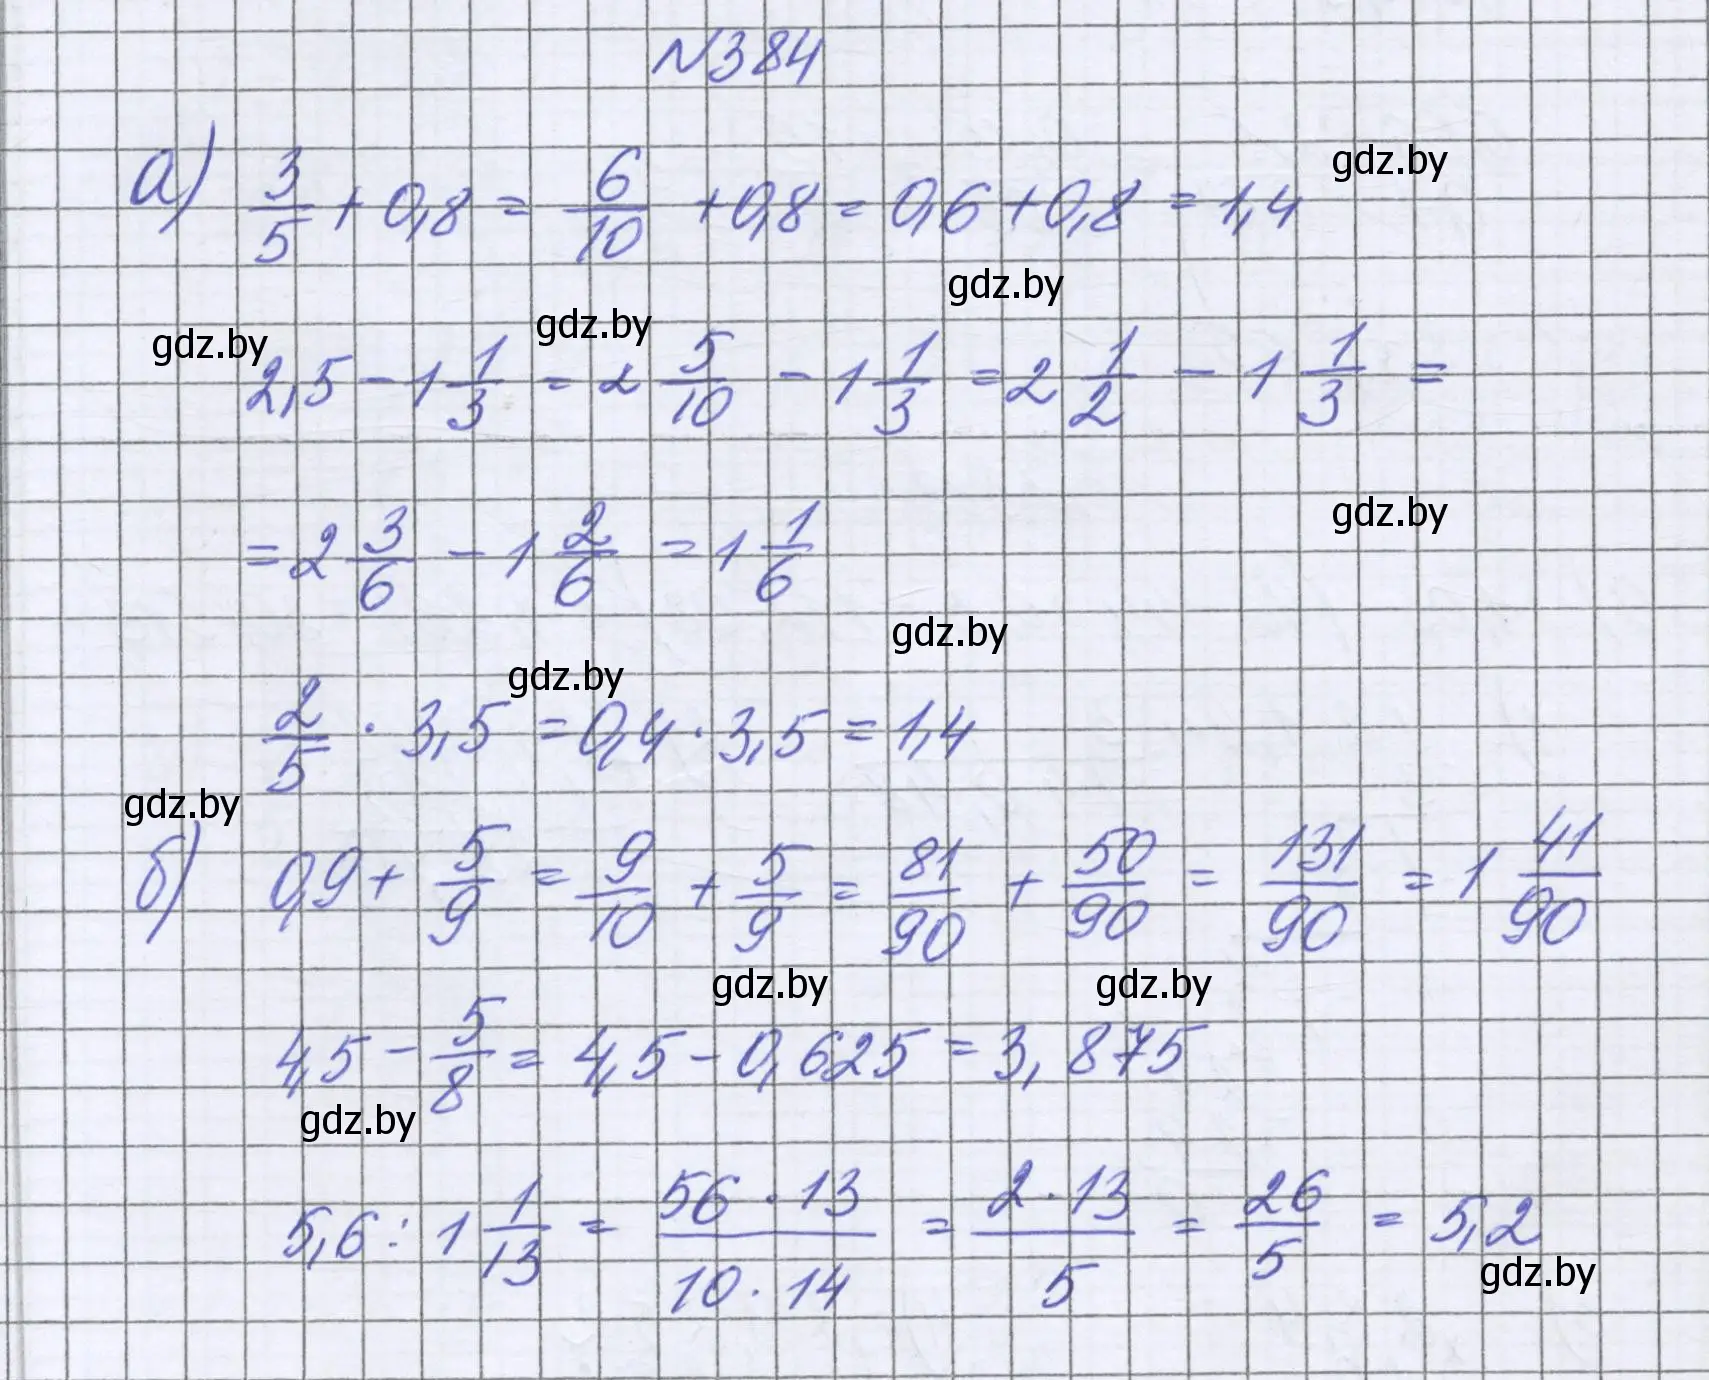 №384
а) 3/5 + 0,8 = 6/10 + 0,8 = 0,6 + 0,8 = 1,4
gdz.by
gdz.by
gdz.by
gdz.by
2,5 - 1 1/3 = 2 5/10 - 1 1/3 = 2 1/2 - 1 1/3 =
= 2 3/6 - 1 2/6 = 1 1/6
gdz.by
gdz.by
gdz.by
2/5 · 3,5 = 0,4 · 3,5 = 1,4
gdz.by
б) 0,9 + 5/9 = 9/10 + 5/9 = 81/90 + 50/90 = 131/90 = 1 41/90
gdz.by
gdz.by
4,5 - 5/8 = 4,5 - 0,625 = 3,875
gdz.by
5,6 : 1 1/13 = 56 · 13/10 · 14 = 2 · 13/5 = 26/5 = 5,2
gdz.by